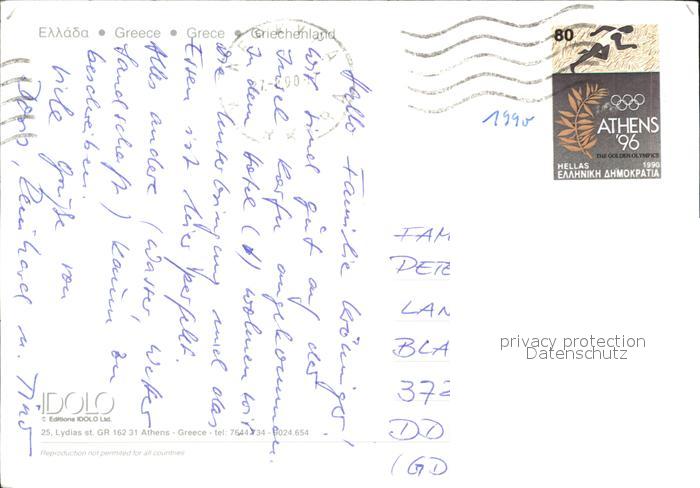 Ελλάδα • Greece • Grece • Griechenland
Hallo Familie
wir sind gut auf der
Insel Korfu angekommen.
In dem Hotel (*) wohnen wir.
Die Unterbringung und das
Essen ist hier perfekt.
Alles andere (Wasser Wetter
Landschaft) kaum zu
beschreiben.
Viele Grüße von
Reinhard u. Tino
IDOLO
© Editions IDOLO Ltd.
25, Lydias st. GR 162 31 Athens - Greece - tel:
Reproduction not permited for all countries
80
ATHENS
'96
THE GOLDEN OLYMPICS
HELLAS 1990
ΕΛΛΗΝΙΚΗ ΔΗΜΟΚΡΑΤΙΑ
1990
FAM
DETE
LAN
BLA
372
DD
(GD
privacy protection
Datenschutz